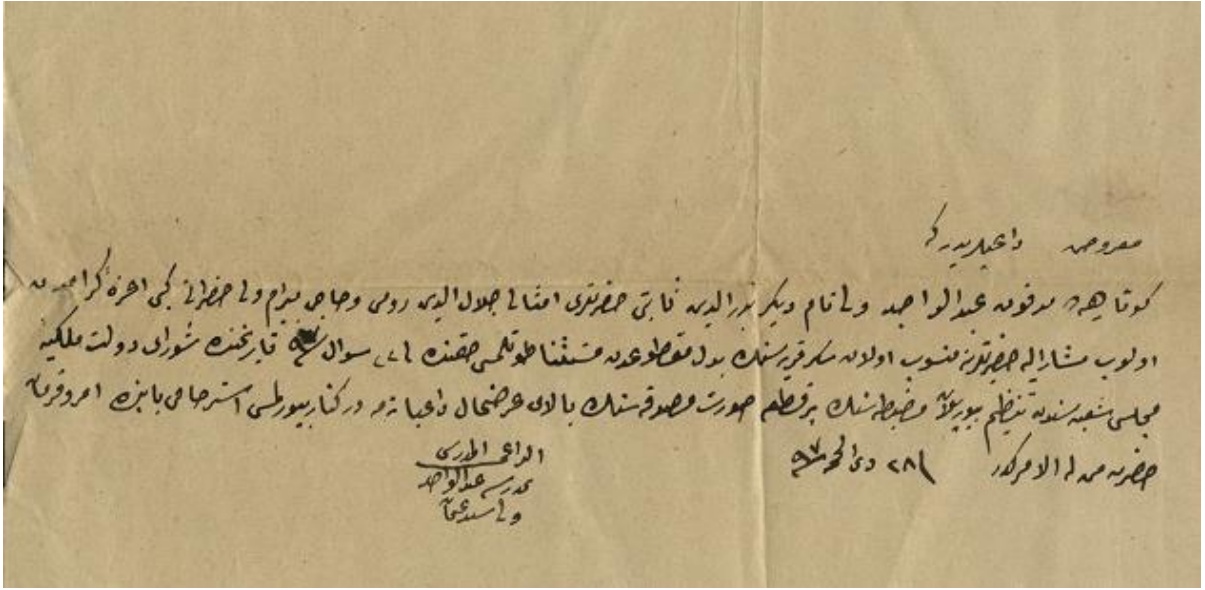 معروض داعيلريدر كه
كوتاهيه ده مدفون عبدالواجد ولى نام ديكر بدرالدين ثابتى حضرتلرى امثالى جلال الدين رومى وحاجى بيرام ولى حضراتى كبى اعزهٔ كرامدن
اولوب مشاراليه حضرتلرينه منسوب اولان قريه سنك بدل مقطوعدن مستثنا طوتلمسى حقنده فى ٢٧ شوال سنه ٩٧ تاريخنده شوراى دولت ملكيه
مجلسى شعبه سندن تنظيم بيوريلان مضبطه سنك بر قطعه صورت مصدقه سنك بالاى عرضحال داعيانه مه دركنار بيورلمسى استرحامى بابنده امر وفرمان
حضرت من له الامركدر فى ٢٨ ذى الحجه سنه ٩٧
الداعى المدرس
مدرسه عبدالواجد
ولى سيد عثمان